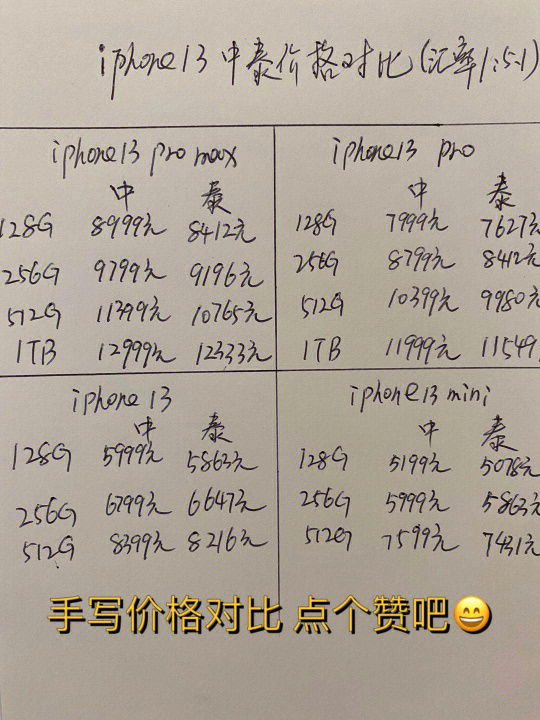 iphone13 中泰价格对比(汇率1:5.1)
iphone13 pro max
中 泰
128G 8999元 8412元
256G 9799元 9196元
512G 11399元 10765元
1TB 12999元 12333元
iphone13 pro
中 泰
128G 7999元 7627元
256G 8799元 8412元
512G 10399元 9980元
1TB 11999元 11549
iphone 13
中 泰
128G 5999元 5863元
256G 6799元 6647元
512G 8399元 8216元
iphone13 mini
中 泰
128G 5199元 5078元
256G 5999元 5863元
512G 7599元 7431元
手写价格对比 点个赞吧😄